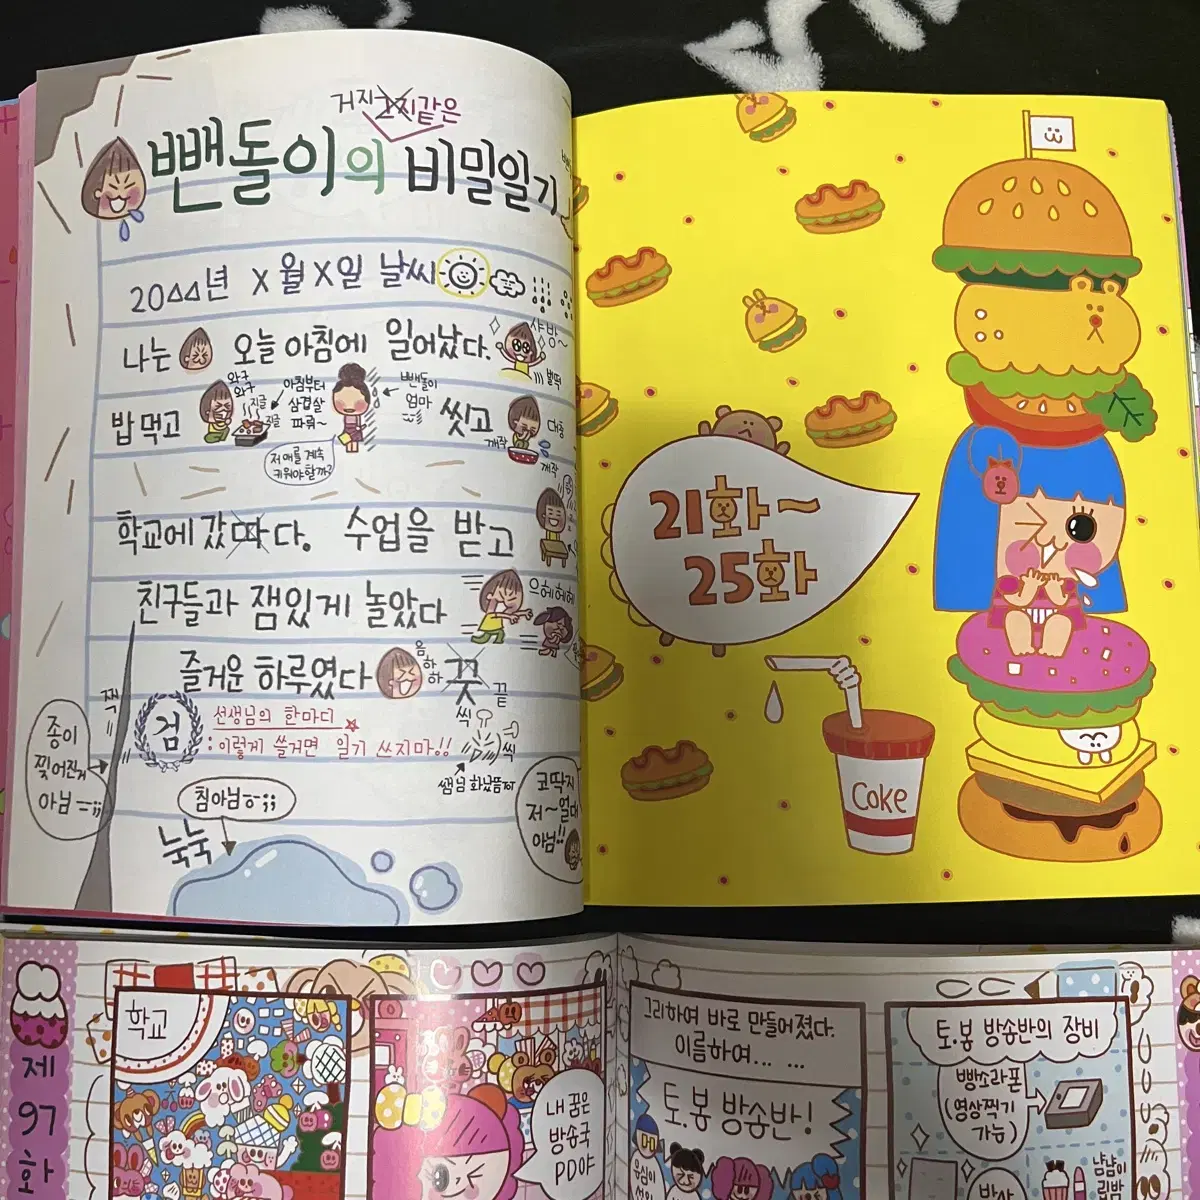 거지고지같은
뺀돌이의 비밀일기
20△△년 X월X일 날씨
나는 오늘 아침에 일어났다.
샤방~
벌떡
밥먹고
와구
와구
지글
지글
아침부터
삼겹살
파뤼~
뺀돌이
엄마
저애를 계속
키워야할까?
씻고
개작
개작
대충
학교에 갔따다. 수업을 받고
친구들과 잼있게 놀았다
으헤헤헤
즐거운 하루였다
음하하
끗
끝
찍
검
선생님의 한마디
: 이렇게 쓸거면 일기 쓰지마!!
씩
씩
쌤님 화났뜸
종이
찢어진거
아님
침아님ㅎ;;
눅눅
코딱지
저~얼대
아님!!
21화~
25화
Coke
제
97
화
학교
내 꿈은
방송국
PD야
그리하여 바로 만들어졌다.
이름하여... ...
토.봉 방송반!
토.봉 방송반의 장비
빵소라폰
(영상찍기
가능)
냠냠이
립밤